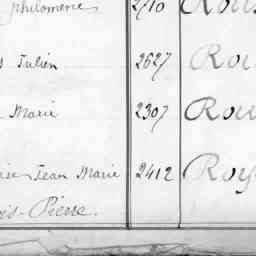 philomene 2710 Rous
Julien 2627 Rou
Marie 2307 Rou
Jean Marie 2412 Roy
Pierre.